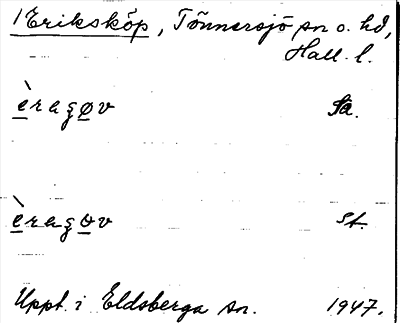 1 Eriksköp, Tönnersjö sn o. hd,
Hall. l.
è̱ragø̱v Sa.
è̱rago̱v st.
Uppt. i Eldsberga sn. 1947.